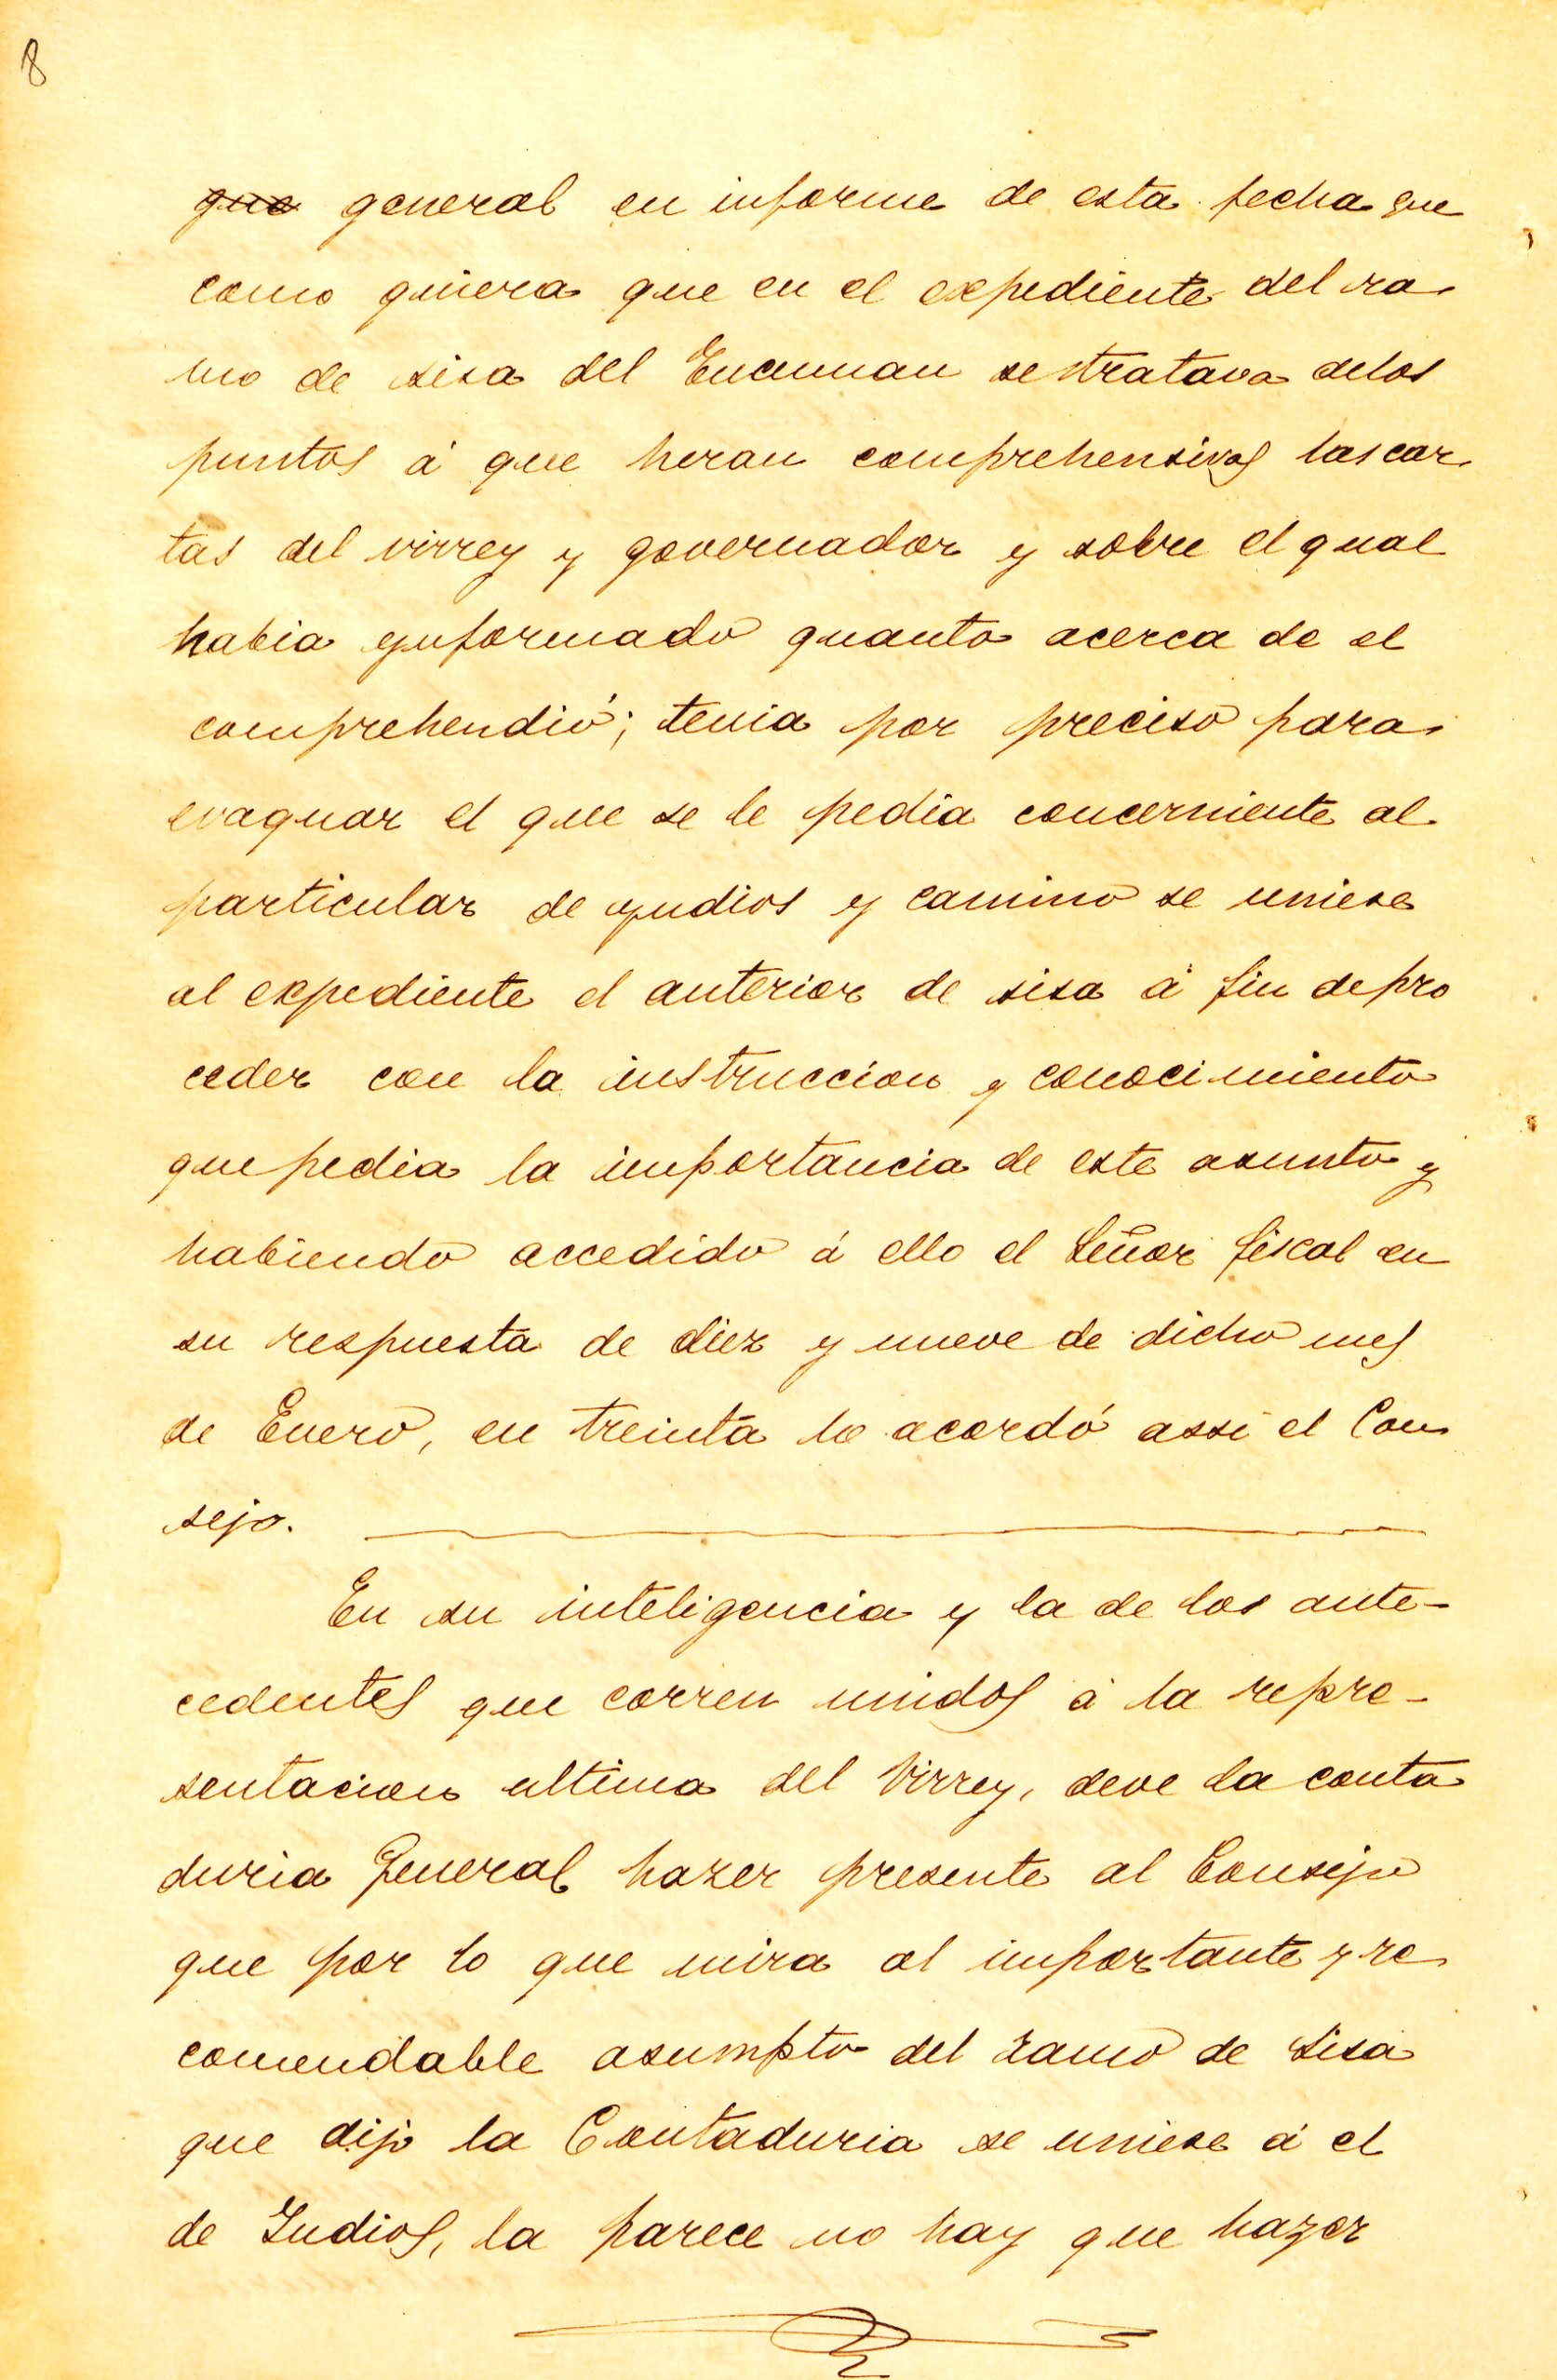 8
que general en informe de esta fecha que
como quiera que en el expediente del ra
mo de sisa del Tucuman se tratava delos
puntos á que heran comprehensivas las car
tas del virrey y governador y sobre el qual
habia ynformado quanto acerca de el
comprehendió; tenia por preciso para
evaquar el que se le pedia concerniente al
particular de yndios y camino se uniese
al expediente el anterior de sisa á fin de pro
ceder con la instruccion y conocimiento
que pedia la importancia de este asunto y
habiendo accedido á ello el Señor fiscal en
su respuesta de diez y nueve de dicho mes
de Enero, en treinta lo acordó assi el Con
sejo.
En su inteligencia y la de los ante-
cedentes que corren unidos á la repre-
sentacion ultima del Virrey, deve la conta
duria General hazer presente al Consejo
que por lo que mira al importante y re
comendable asumpto del ramo de Sisa
que dijo la Contaduria se uniese á el
de Indios, la parece no hay que hazer